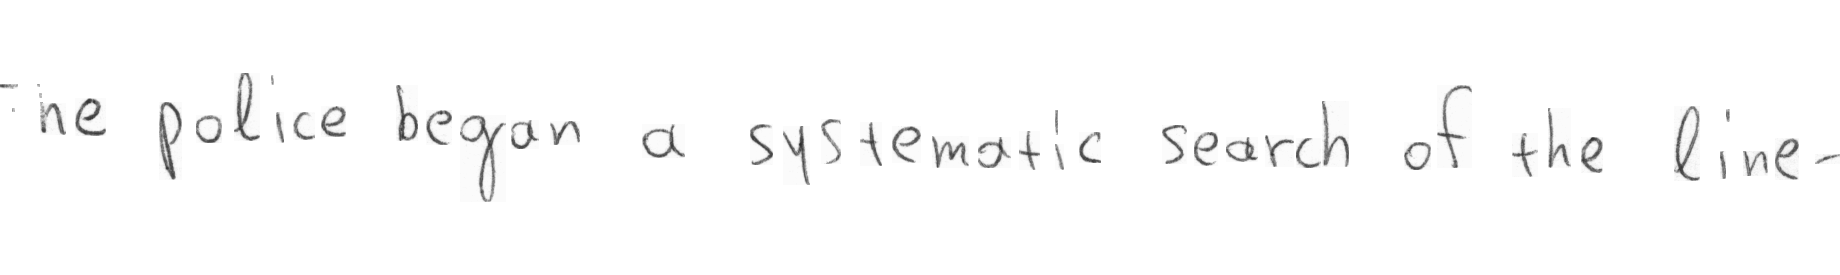 The police began a systematic search of the line-